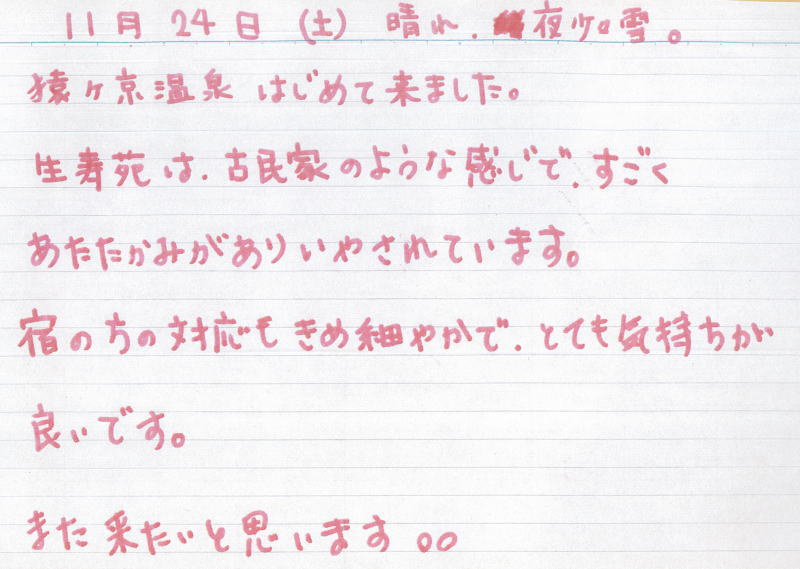 11月24日(土) 晴れ.夜少々雪。
猿ヶ京温泉 はじめて来ました。
生寿苑は.古民家のような感じで.すごく
あたたかみがありいやされています。
宿の方の対応もきめ細やかで.とても気持ちが
良いです。
また来たいと思います。。